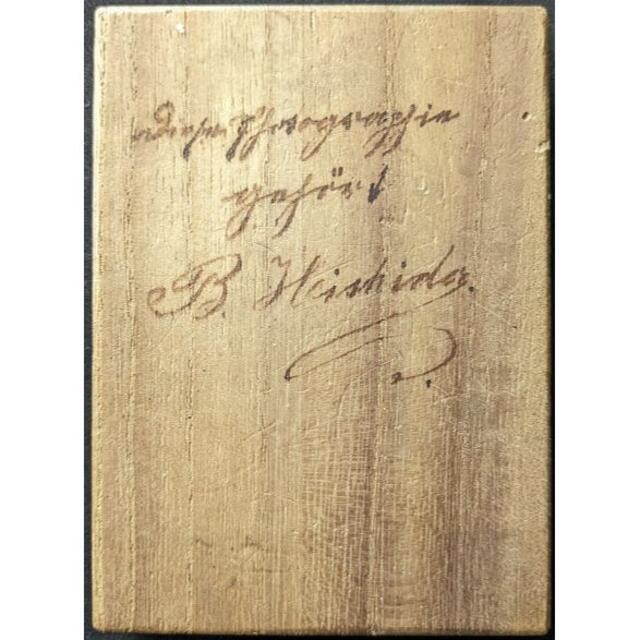 Diese Photographie
gehört
B. Hishida.